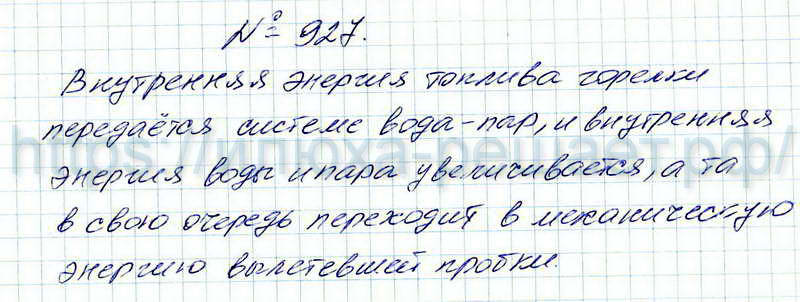 № 927.
Внутренняя энергия топлива горелки
передаётся системе вода-пар, и внутренняя
энергия воды и пара увеличивается, а та
в свою очередь переходит в механическую
энергию вылетевшей пробки.
https://илюха-решает.рф/